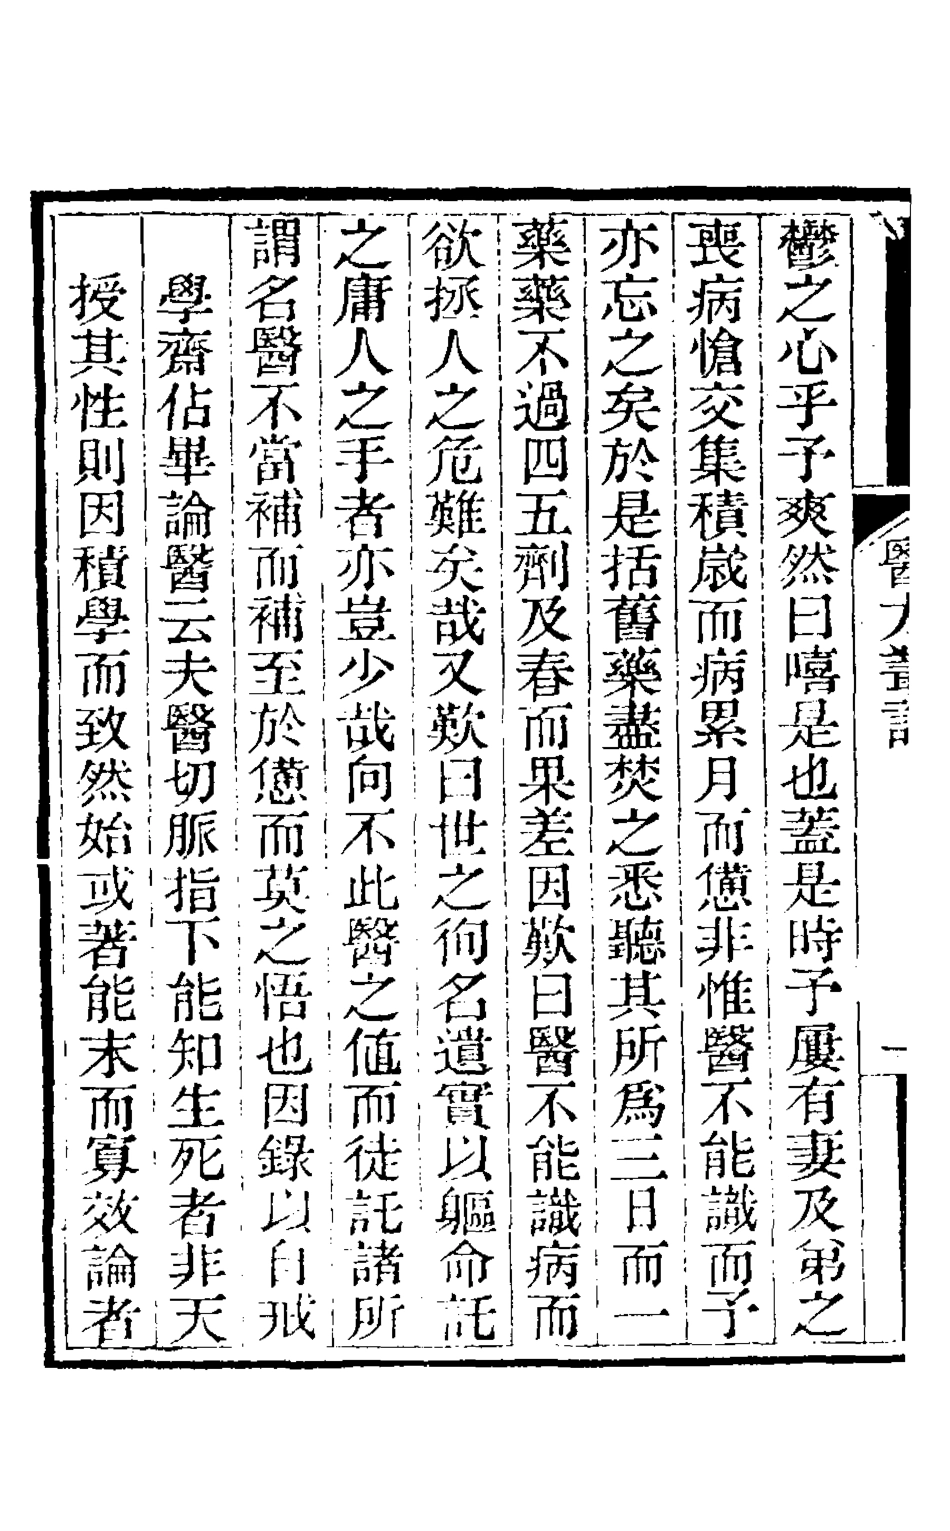 鬱之心乎予爽然曰嘻是也蓋是時予屢有妻及弟之
喪病愴交集積歲而病累月而憊非惟醫不能識而予
亦忘之矣於是括舊藥盡焚之悉聽其所爲三日而一
藥藥不過四五劑及春而果差因歎曰醫不能識病而
欲拯人之危難矣哉又歎曰世之徇名遺實以軀命託
之庸人之手者亦豈少哉向不此醫之値而徒託諸所
謂名醫不當補而補至於憊而莫之悟也因錄以自戒
學齋佔畢論醫云夫醫切脈指下能知生死者非天
授其性則因積學而致然始或著能末而寡效論者
一